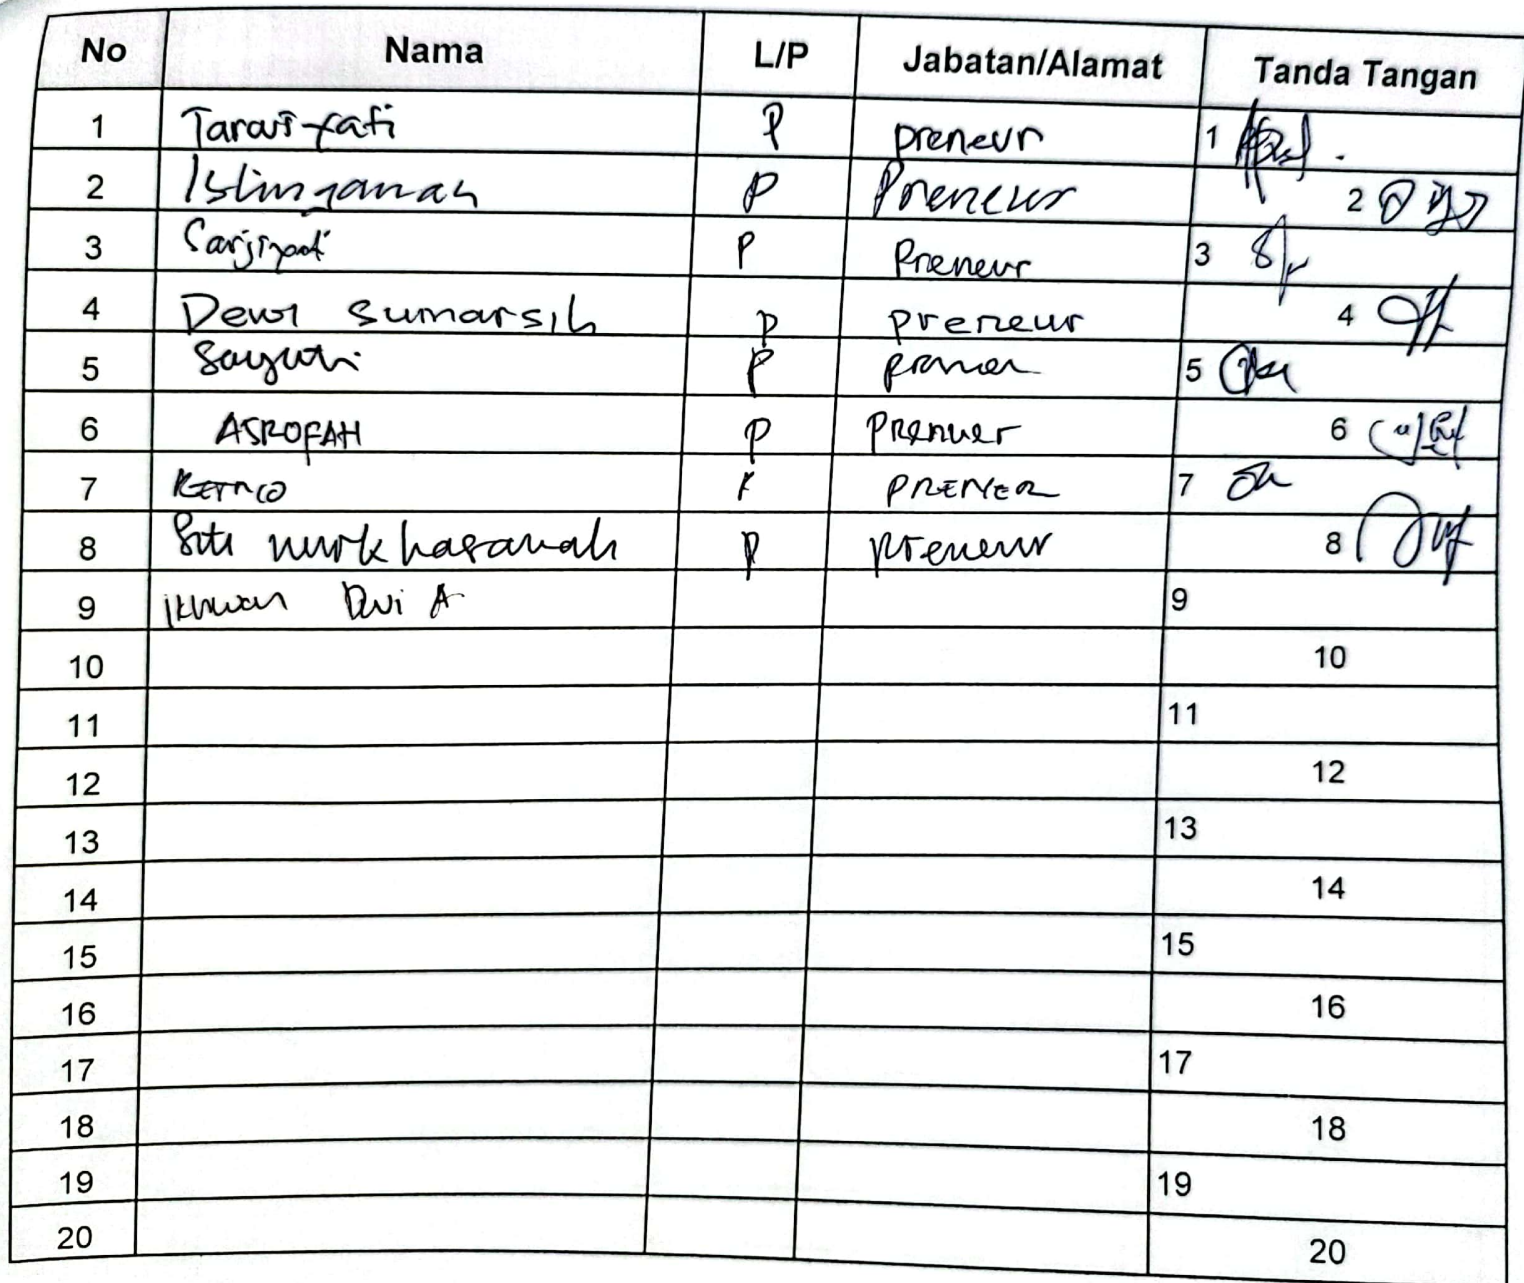 No Nama L/P Jabatan/Alamat Tanda Tangan
1 P preneur 1
2 Istinganah P Preneur 2
3 Sarjiyati P Preneur 3
4 Dewi Sumarsih P preneur 4
5 Sayuti P 5
6 ASROFAH P Prenuer 6
7 PRENER 7
8 Siti nurkhasanah P preneur 8
9 Ikhwan Dwi A 9
10 10
11 11
12 12
13 13
14 14
15 15
16 16
17 17
18 18
19 19
20 20